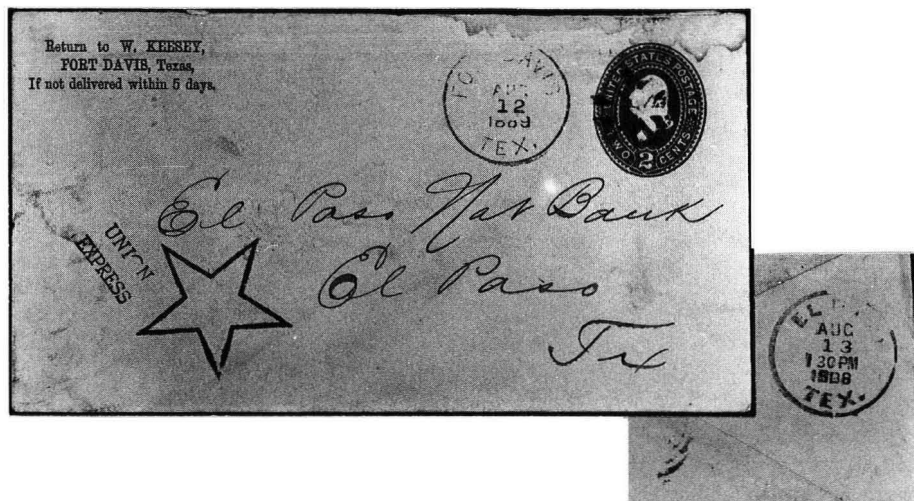 Return to W. KEESEY,
FORT DAVIS, Texas,
If not delivered within 5 days.
DAVIS
AUG
12
TEX.
UNITED STATES POSTAGE
TWO 2 CENTS
El Paso Nat Bank
El Paso
Tx
UNION
EXPRESS
EL
AUG
13
1 30PM
TEX.